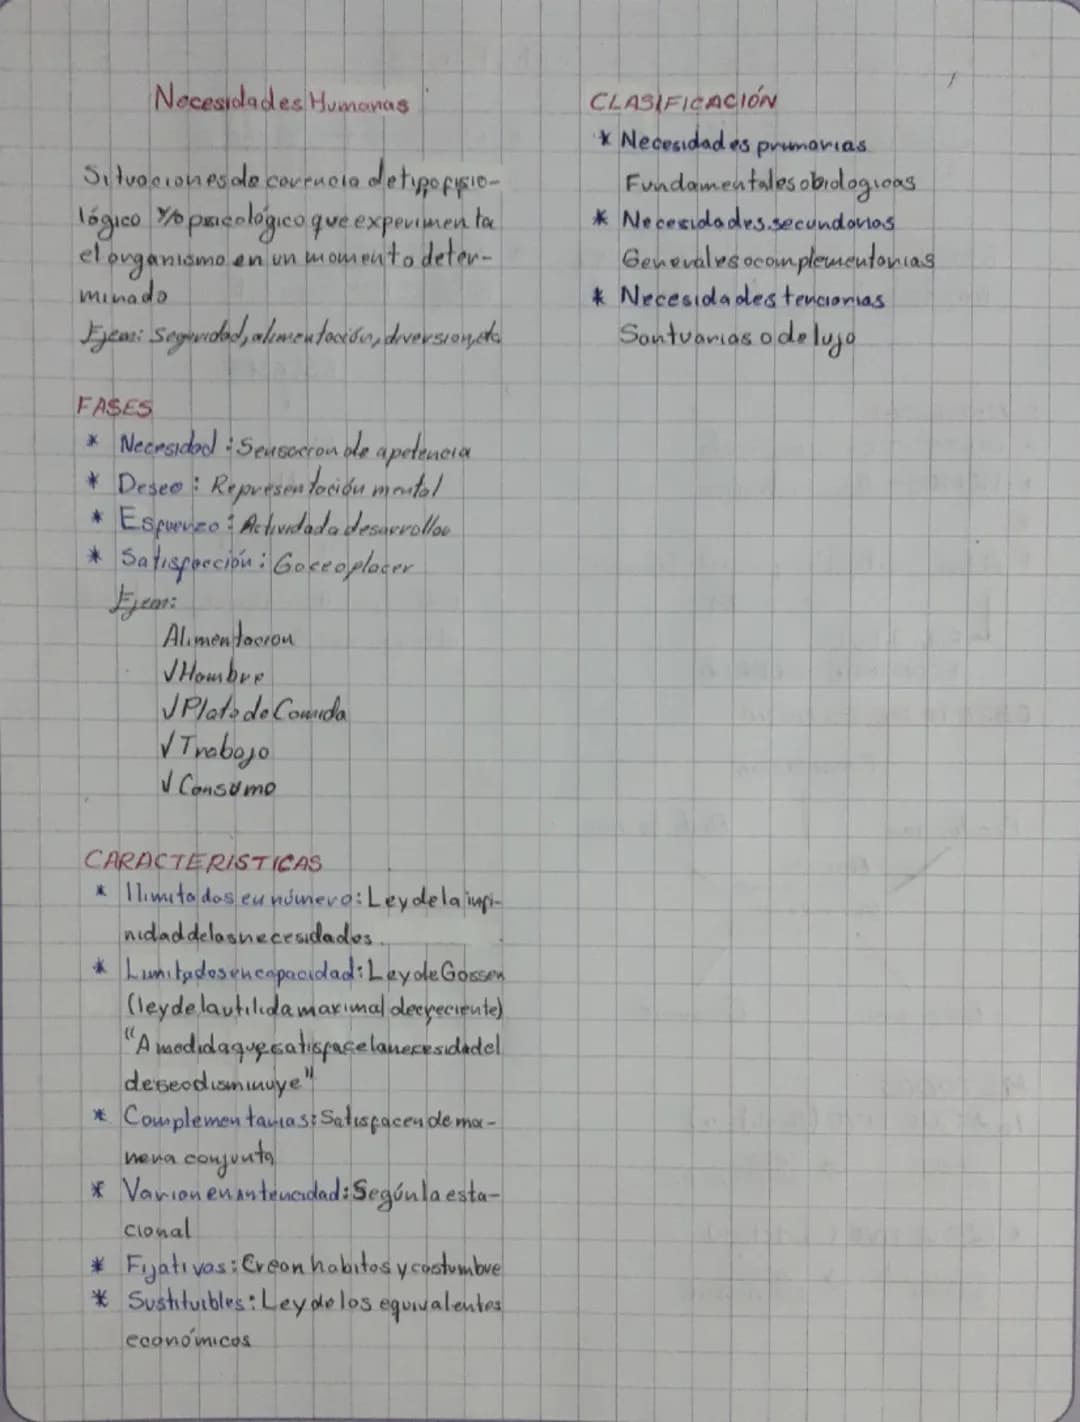 Necesidades Humanas
Situaciones de carencia de tipo fisio-
lógico y/o psicológico que experimenta
el organismo en un momento deter-
minado
Ejem: Seguridad, alimentación, diversion, etc
FASES
* Necesidad : Sensacion de apetencia
* Deseo : Representación mental
* Esfuerzo : Actividad a desarrollar
* Satisfacción : Goce o placer
Ejem:
Alimentacion
√ Hambre
√ Plato de Comida
√ Trabajo
√ Consumo
CARACTERISTICAS
* Ilimitadas en número: Ley de la infi-
nidad de las necesidades.
* Limitados en capacidad: Ley de Gossen
(ley de la utilida maximal decreciente)
"A medida que satisface la necesidad el
deseo disminuye"
* Complementarias: Satisfacen de ma-
nera conjunta
* Varian en intencidad: Según la esta-
cional
* Fijativas: Crean habitos y costumbre
* Sustituibles: Ley de los equivalentes
económicos
CLASIFICACIÓN
* Necesidades primarias
Fundamentales o biologicas
* Necesidades secundarias
Generales o complementarias
* Necesidades terciarias
Santuarias o de lujo